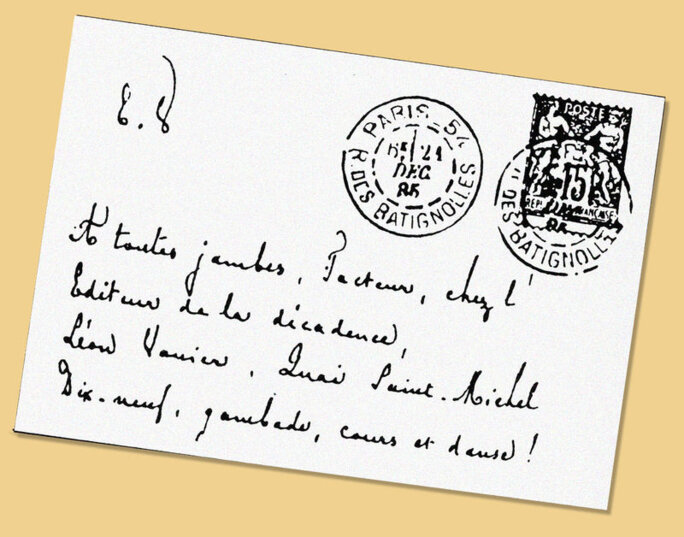 E. V
PARIS_54
6E 21
DEC
85
R. DES BATIGNOLLES
POSTE
15
REPUB FRANÇAISE
R. DES BATIGNOLLE
A toutes jambes, Facteur, chez l'
Editeur de la décadence,
Léon Vanier, Quai Saint-Michel
Dix-neuf, gambade, cours et danse !